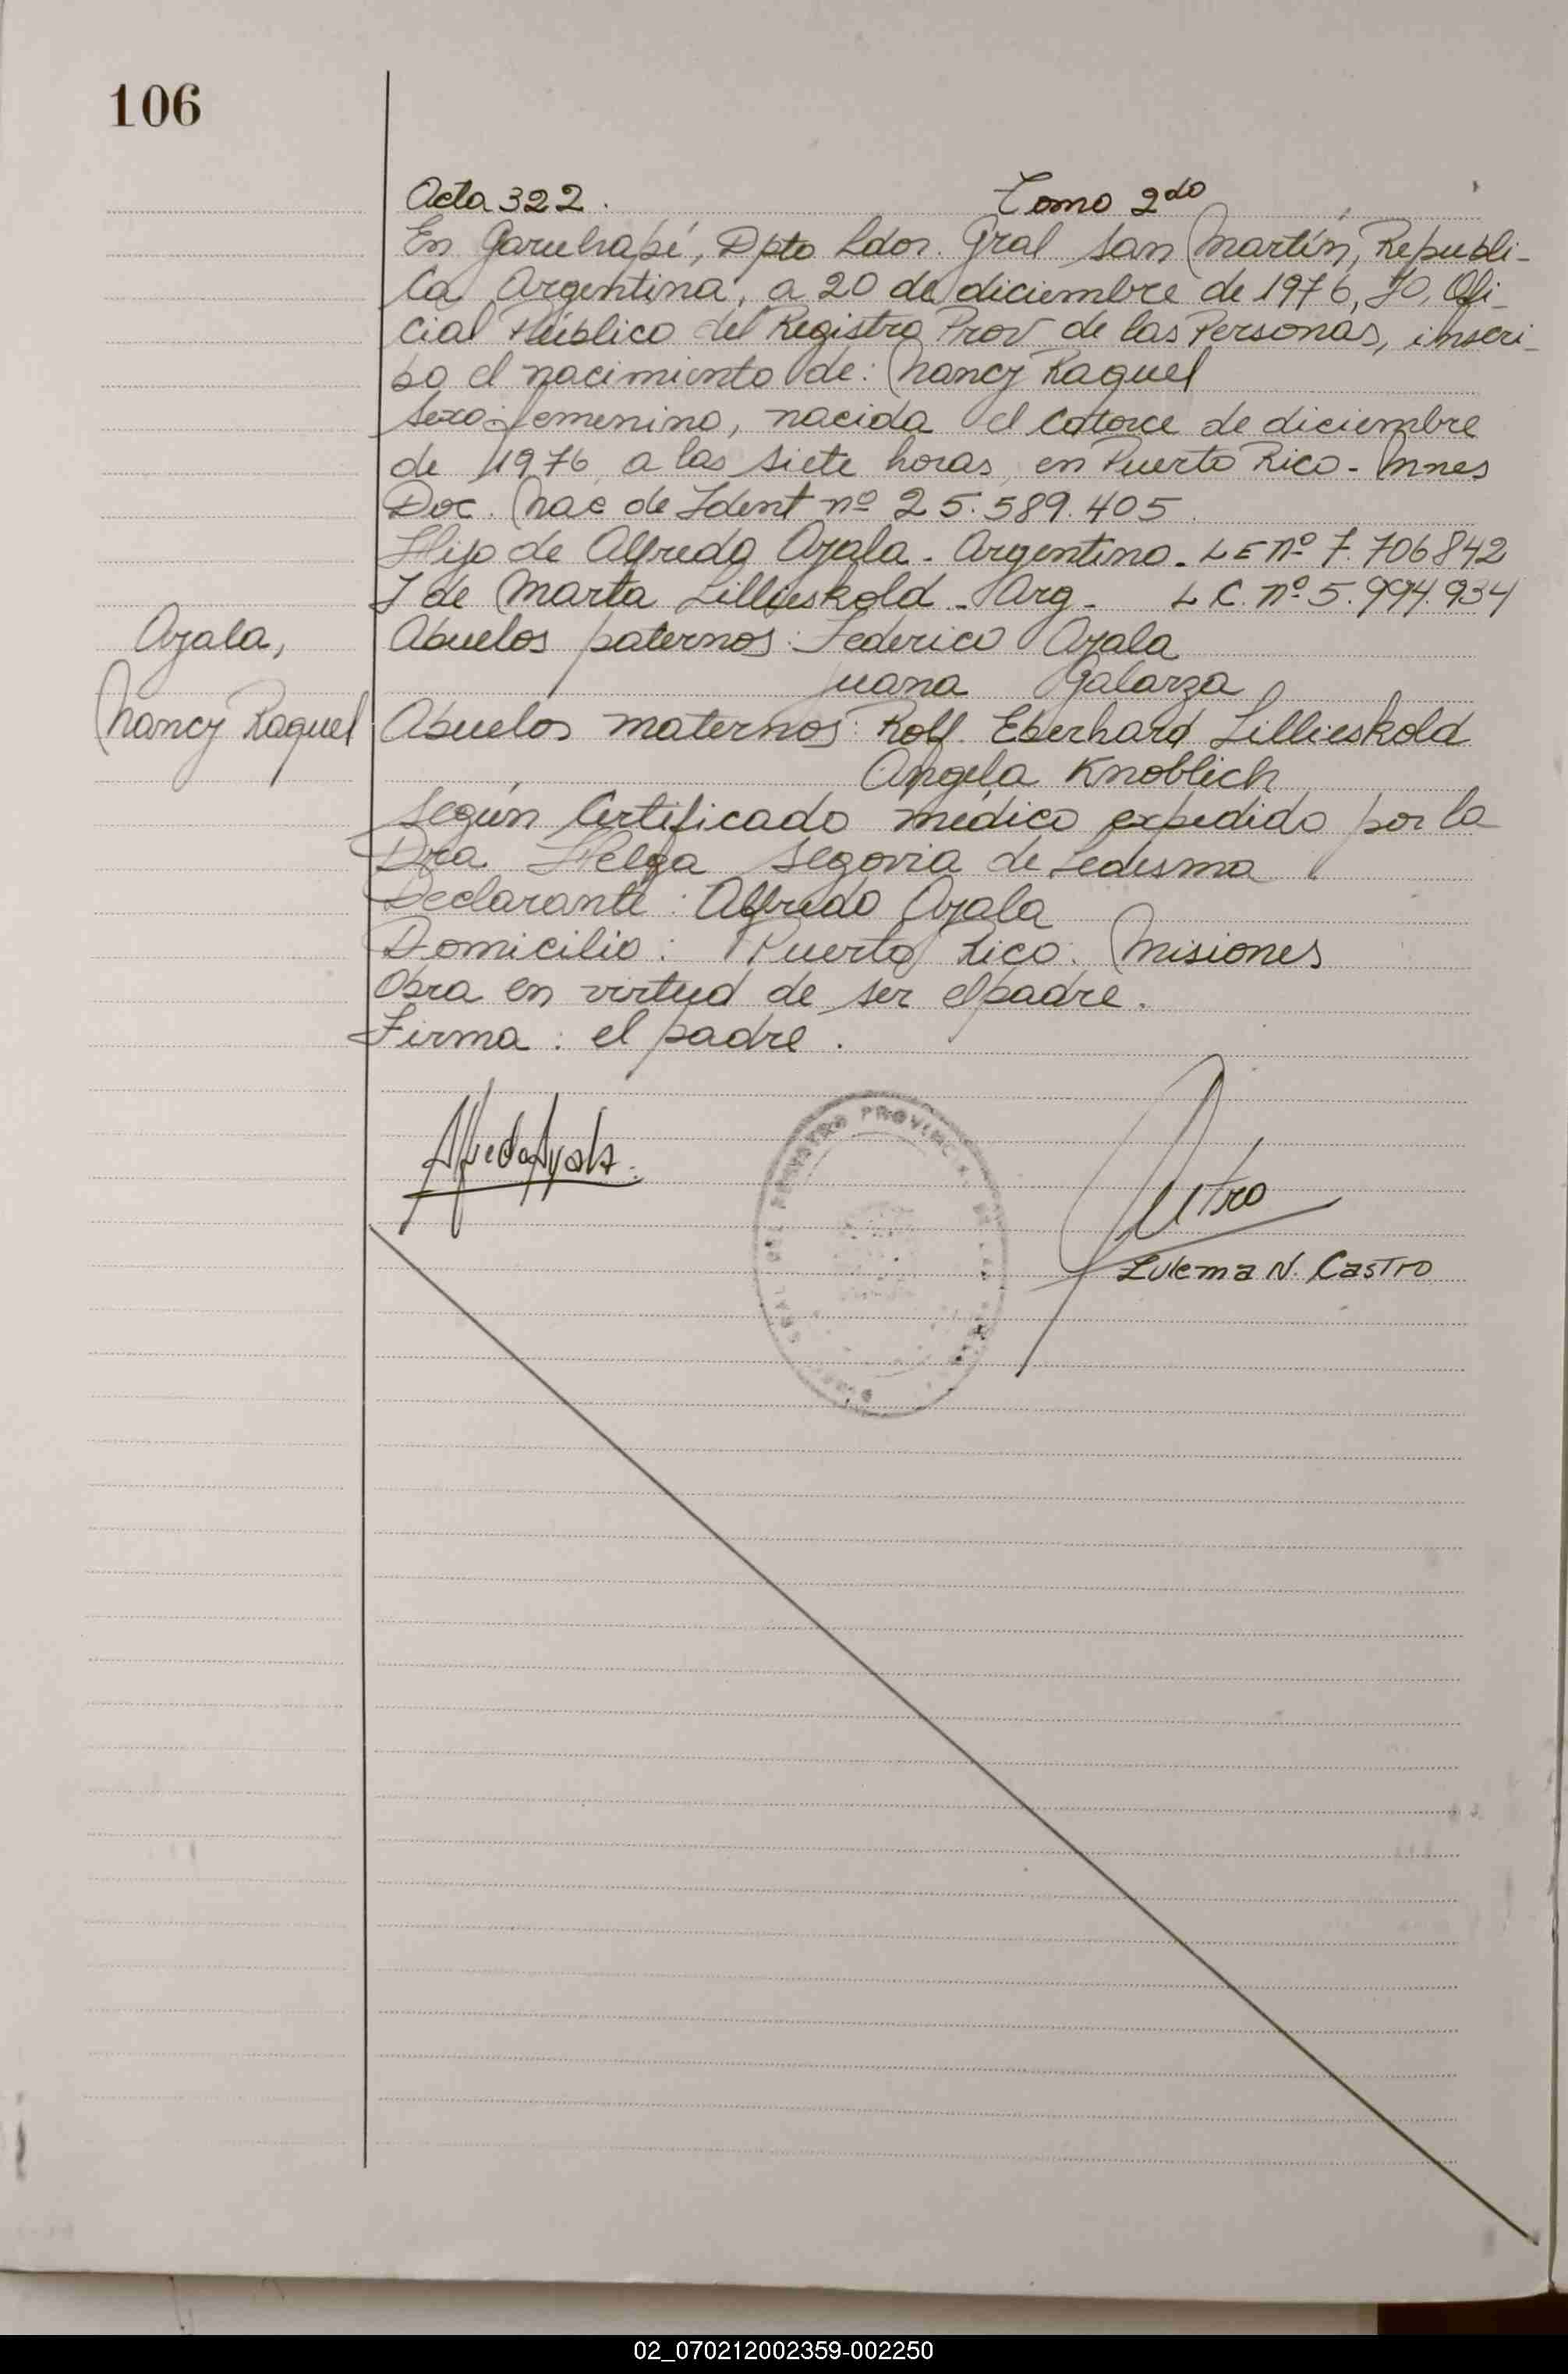 106
Acta 322. Tomo 2do
En Garuhapé, Dpto Ldor. Gral San Martín, Republi-
ca Argentina, a 20 de diciembre de 1976, yo, Ofi-
cial Público del Registro Prov de las Personas, inscri-
bo el nacimiento de: Nancy Raquel
Sexo femenino, nacida el catorce de diciembre
de 1976 a las siete horas, en Puerto Rico - Mnes
Doc. Nac de Ident nº 25.589.405
Hijo de Alfredo Ayala - Argentino - LE nº 7.706842
Y de Marta Lillieskold - Arg - L C. nº 5.994.934
Ayala,
Nancy Raquel
Abuelos paternos: Federico Ayala
Juana Galarza
Abuelos maternos: Rolf Eberhard Lillieskold
Angela Knoblich
Según Certificado médico expedido por la
Dra Helga Segovia de Ledesma
Declarante: Alfredo Ayala
Domicilio: Puerto Rico. Misiones
Obra en virtud de ser el padre.
Firma: el padre.
Alfredo Ayala.
REGISTRO PROVINCIAL DE LAS
Castro
Zulema N. Castro
02_070212002359-002250